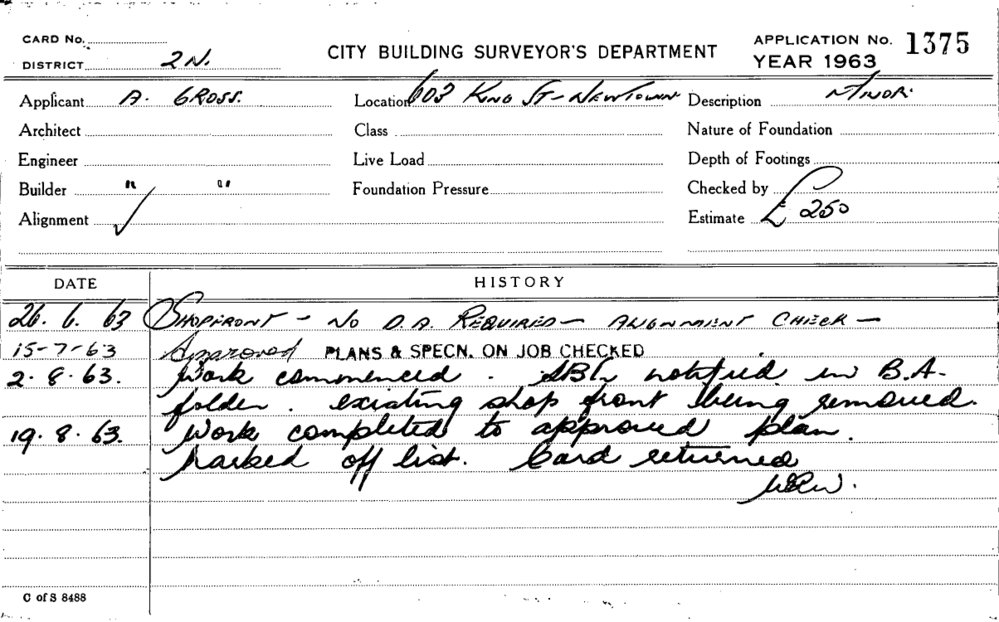 CARD No.
DISTRICT 2N.
CITY BUILDING SURVEYOR'S DEPARTMENT
APPLICATION No. 1375
YEAR 1963
Applicant A. GROSS. Location 603 KING ST - NEWTOWN Description MINOR.
Architect Class Nature of Foundation
Engineer Live Load Depth of Footings
Builder " " Foundation Pressure Checked by
Alignment ✓ Estimate £ 250
DATE HISTORY
26. 6. 63 SHOPFRONT - NO D.A. REQUIRED - ALIGNMENT CHECK -
15-7-63 Approved PLANS & SPECN. ON JOB CHECKED
2. 8. 63. Work commenced. notified in B.A.
folder. existing shop front being removed.
19. 8. 63. Work completed to approved plan.
Marked off list. Card returned
C of S 8488